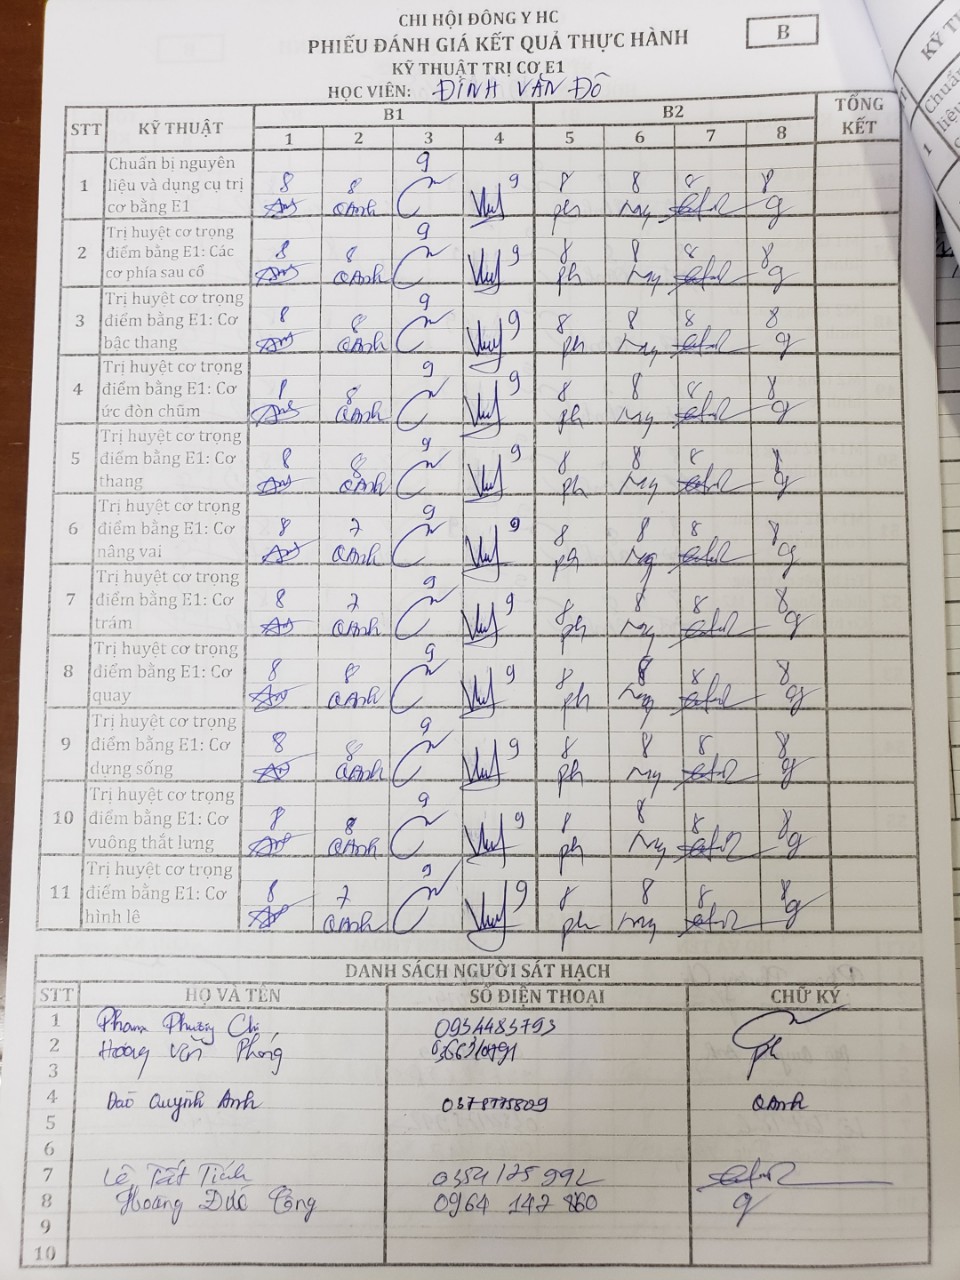 CHI HỘI ĐÔNG Y HC
PHIẾU ĐÁNH GIÁ KẾT QUẢ THỰC HÀNH
B
KỸ THUẬT TRỊ CƠ E1
HỌC VIÊN: ĐINH VĂN ĐÔ
STT KỸ THUẬT B1 B2 TỔNG KẾT
1 2 3 4 5 6 7 8
1 Chuẩn bị nguyên liệu và dụng cụ trị cơ bằng E1 8 8 9 9 8 8 8 8
QAnh ph My g
2 Trị huyệt cơ trọng điểm bằng E1: Các cơ phía sau cổ 8 8 9 9 8 8 8 8
QAnh ph My g
3 Trị huyệt cơ trọng điểm bằng E1: Cơ bậc thang 8 8 9 9 8 8 8 8
QAnh ph My g
4 Trị huyệt cơ trọng điểm bằng E1: Cơ ức đòn chũm 8 8 9 9 8 8 8 8
QAnh ph My g
5 Trị huyệt cơ trọng điểm bằng E1: Cơ thang 8 8 9 9 8 8 8 8
QAnh ph My g
6 Trị huyệt cơ trọng điểm bằng E1: Cơ nâng vai 8 7 9 9 8 8 8 8
QAnh ph My g
7 Trị huyệt cơ trọng điểm bằng E1: Cơ trám 8 7 9 9 8 8 8 8
QAnh ph My g
8 Trị huyệt cơ trọng điểm bằng E1: Cơ quay 8 8 9 9 8 8 8 8
QAnh ph My g
9 Trị huyệt cơ trọng điểm bằng E1: Cơ dựng sống 8 8 9 9 8 8 8 8
QAnh ph My g
10 Trị huyệt cơ trọng điểm bằng E1: Cơ vuông thắt lưng 8 8 9 9 8 8 8 8
QAnh ph My g
11 Trị huyệt cơ trọng điểm bằng E1: Cơ hình lê 8 7 9 9 8 8 8 8
QAnh ph My g
DANH SÁCH NGƯỜI SÁT HẠCH
STT HỌ VÀ TÊN SỐ ĐIỆN THOẠI CHỮ KÝ
1 Phạm Phương Chi 0934483793
2 Hoàng Văn Phong ph
3
4 Đào Quỳnh Anh QAnh
5
6
7 Lê Tất Tính 0354125992
8 Hoàng Đức Công 0964 142 860 g
9
10